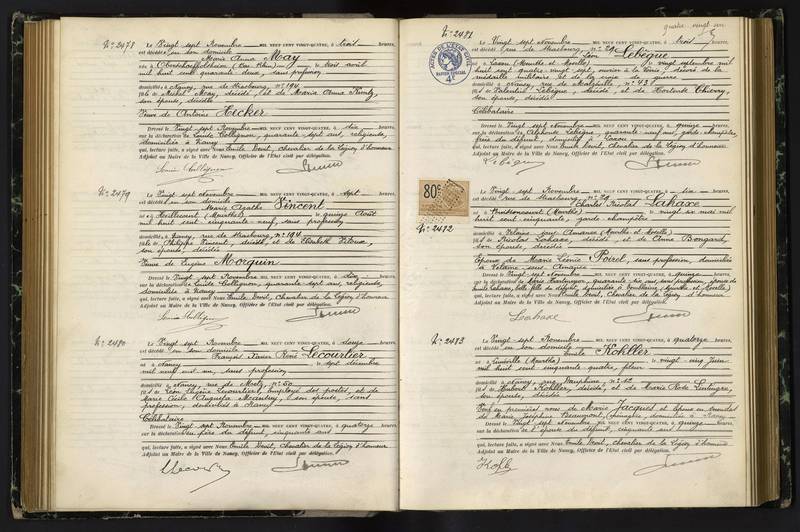 N° 2478
Le Vingt sept Novembre MIL NEUF CENT VINGT-QUATRE, à trois heures,
est décédée en son domicile
Marie Anna May
née à Oberschaeffolsheim (Bas Rhin), le trois août
mil huit cent quarante deux, sans profession
domiciliée à Nancy, rue de Strasbourg, n° 194
fille de Michel May, décédé, et de Marie Anna Kuntz,
son épouse, décédée
Veuve de Antoine Hecker
Dressé le Vingt sept Novembre MIL NEUF CENT VINGT-QUATRE, à dix heures,
sur la déclaration de Emilie Collignon, quarante-sept ans, religieuse,
domiciliée à Nancy
qui, lecture faite, a signé avec Nous Emile Droit, Chevalier de la Légion d'honneur
Adjoint au Maire de la Ville de Nancy, Officier de l'Etat civil par délégation.
N° 2479
Le Vingt sept Novembre MIL NEUF CENT VINGT-QUATRE, à sept heures,
est décédée en son domicile
Marie Agathe Vincent
née à Heillecourt (Meurthe), le quinze Août
mil huit cent cinquante neuf, sans profession
domiciliée à Nancy, rue de Strasbourg, n° 194
fille de Philippe Vincent, décédé, et de Elisabeth
son épouse, décédée
Veuve de Eugène Morquin
Dressé le Vingt sept Novembre MIL NEUF CENT VINGT-QUATRE, à dix heures,
sur la déclaration de Emilie Collignon, quarante-sept ans, religieuse,
domiciliée à Nancy
qui, lecture faite, a signé avec Nous Emile Droit, Chevalier de la Légion d'honneur
Adjoint au Maire de la Ville de Nancy, Officier de l'Etat civil par délégation.
N° 2480
Le Vingt sept Novembre MIL NEUF CENT VINGT-QUATRE, à douze heures,
est décédé en son domicile
François Xavier René Lecourtier
né à Nancy, le sept décembre
mil neuf cent un, sans profession
domicilié à Nancy, rue de Metz, n° 50
fils de Léon Eugène Lecourtier, employé des postes, et de
Marie Cécile Augusta, son épouse, sans
profession, domiciliés à Nancy
Célibataire
Dressé le Vingt sept Novembre MIL NEUF CENT VINGT-QUATRE, à quatorze heures,
sur la déclaration du père du défunt, cinquante ans
qui, lecture faite, a signé avec Nous Emile Droit, Chevalier de la Légion d'honneur
Adjoint au Maire de la Ville de Nancy, Officier de l'Etat civil par délégation.
quatre vingt un
N° 2481
Le Vingt sept Novembre MIL NEUF CENT VINGT-QUATRE, à trois heures,
est décédé rue de Strasbourg, n° 29
Léon Lebègue
né à Laxou (Meurthe et Moselle), le vingt septembre mil
huit cent quatre vingt sept, ouvrier à la voirie, décoré de la
médaille militaire et de la croix de guerre
domicilié à Nancy, rue de Malzéville, n° 43
fils de Valentin Lebègue, décédé, et de Hortense Thierry,
son épouse, décédée
Célibataire
Dressé le Vingt sept Novembre MIL NEUF CENT VINGT-QUATRE, à quinze heures,
sur la déclaration de Alphonse Lebègue, quarante neuf ans, garde champêtre,
frère du défunt, domicilié à Laxou
qui, lecture faite, a signé avec Nous Emile Droit, Chevalier de la Légion d'honneur
Adjoint au Maire de la Ville de Nancy, Officier de l'Etat civil par délégation.
80c
N° 2482
Le Vingt sept Novembre MIL NEUF CENT VINGT-QUATRE, à dix heures,
est décédé rue de Strasbourg, n° 29
Charles Nicolas Lahaxe
né à (Meurthe), le vingt six mai mil
huit cent cinquante, garde champêtre
domicilié à Velaine sous Amance (Meurthe et Moselle)
fils de Nicolas Lahaxe, décédé, et de Anne Bongard,
son épouse, décédée
Epoux de Marie Léonie Poirel, sans profession, domiciliée
à Velaine sous Amance
Dressé le Vingt sept Novembre MIL NEUF CENT VINGT-QUATRE, à quinze heures,
sur la déclaration de Marie, quarante six ans, sans profession, épouse de
Lahaxe, belle fille du défunt, domiciliée à (Meurthe et Moselle)
qui, lecture faite, a signé avec Nous Emile Droit, Chevalier de la Légion d'honneur
Adjoint au Maire de la Ville de Nancy, Officier de l'Etat civil par délégation.
N° 2483
Le Vingt sept Novembre MIL NEUF CENT VINGT-QUATRE, à quatorze heures,
est décédé en son domicile
Emile Kohller
né à Lunéville (Meurthe), le vingt cinq Juin
mil huit cent soixante quatre, fleur
domicilié à Nancy, rue Dauphine, n° 12
fils de Hubert Kohller, décédé, et de Marie Rose
son épouse, décédée
Veuf en premières noces de Marie Jacques et époux en secondes
de Marie Joséphine Beaumont, domiciliée à Nancy
Dressé le Vingt sept Novembre MIL NEUF CENT VINGT-QUATRE, à quinze heures,
sur la déclaration de l'épouse du défunt, cinquante
qui, lecture faite, a signé avec Nous Emile Droit, Chevalier de la Légion d'honneur
Adjoint au Maire de la Ville de Nancy, Officier de l'Etat civil par délégation.